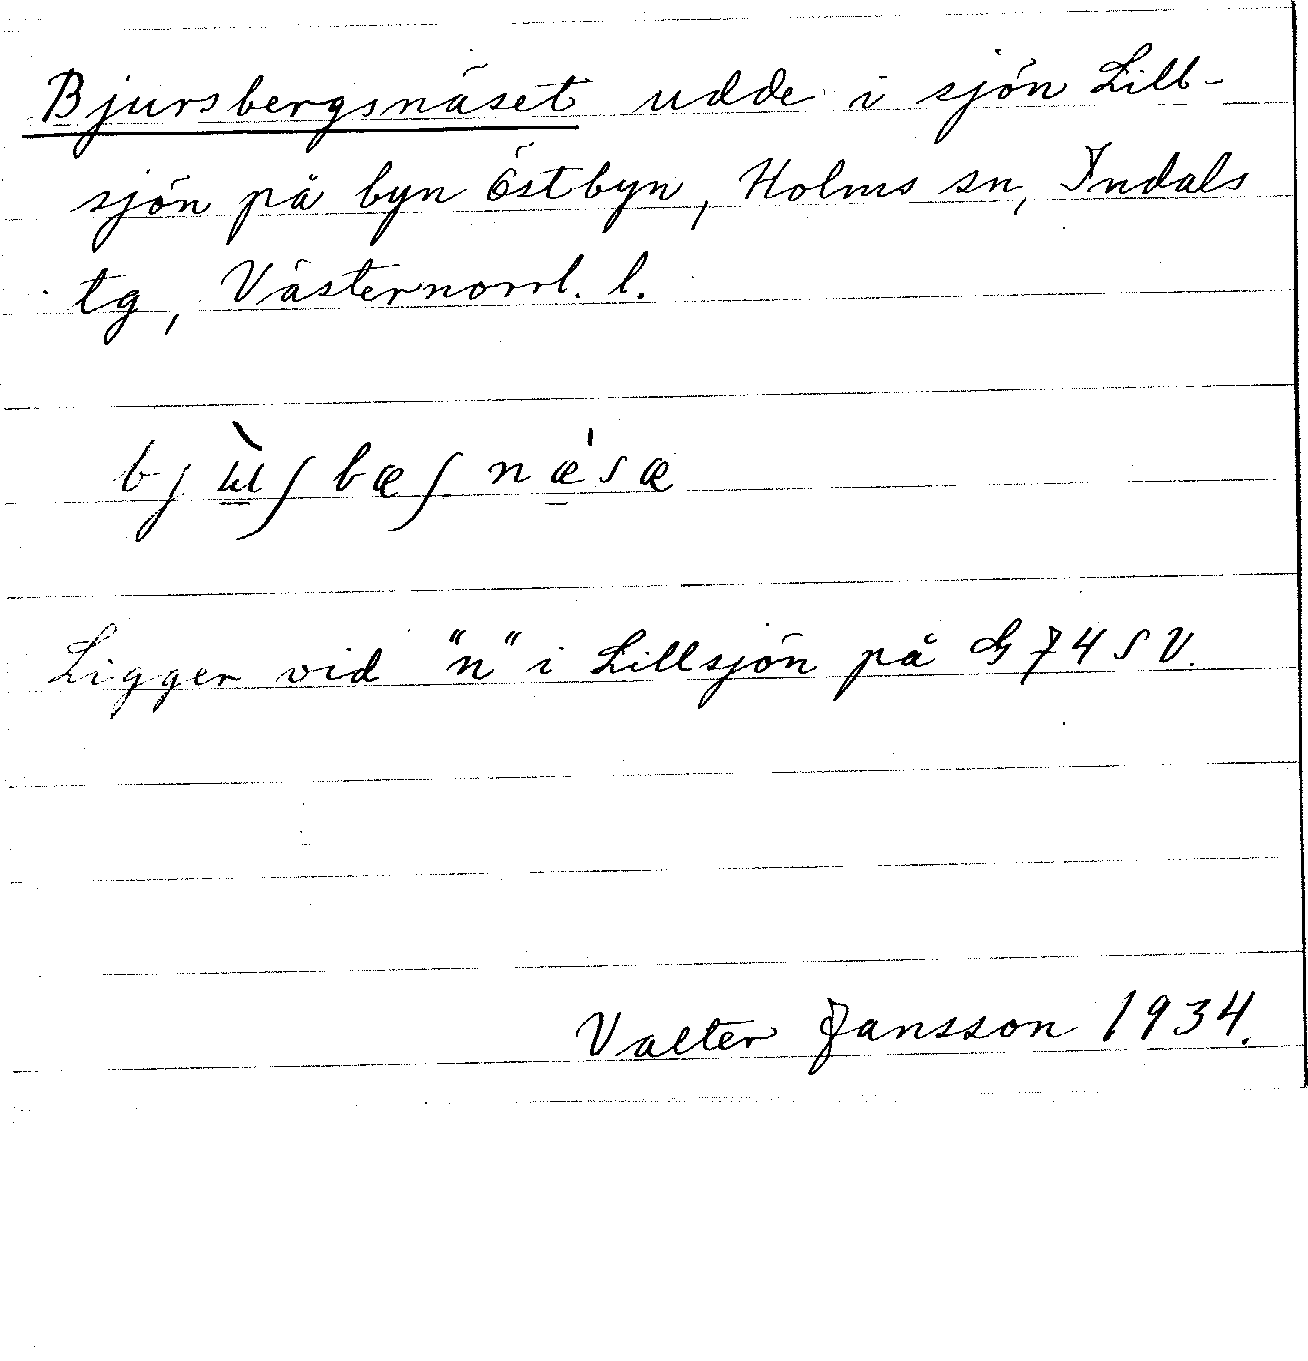 Bjursbergsnäset udde i sjön Lill-
sjön på byn Östbyn, Holms sn, Indals
tg, Västernorrl. l.
bjɯ̀ʃbæʃnǽsæ
Ligger vid "n" i Lillsjön på G 74 SV.
Valter Jansson 1934.